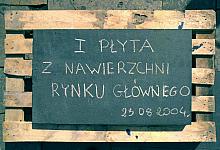 I PŁYTA
Z NAWIERZCHNI
RYNKU GŁÓWNEGO
25 08 2004.